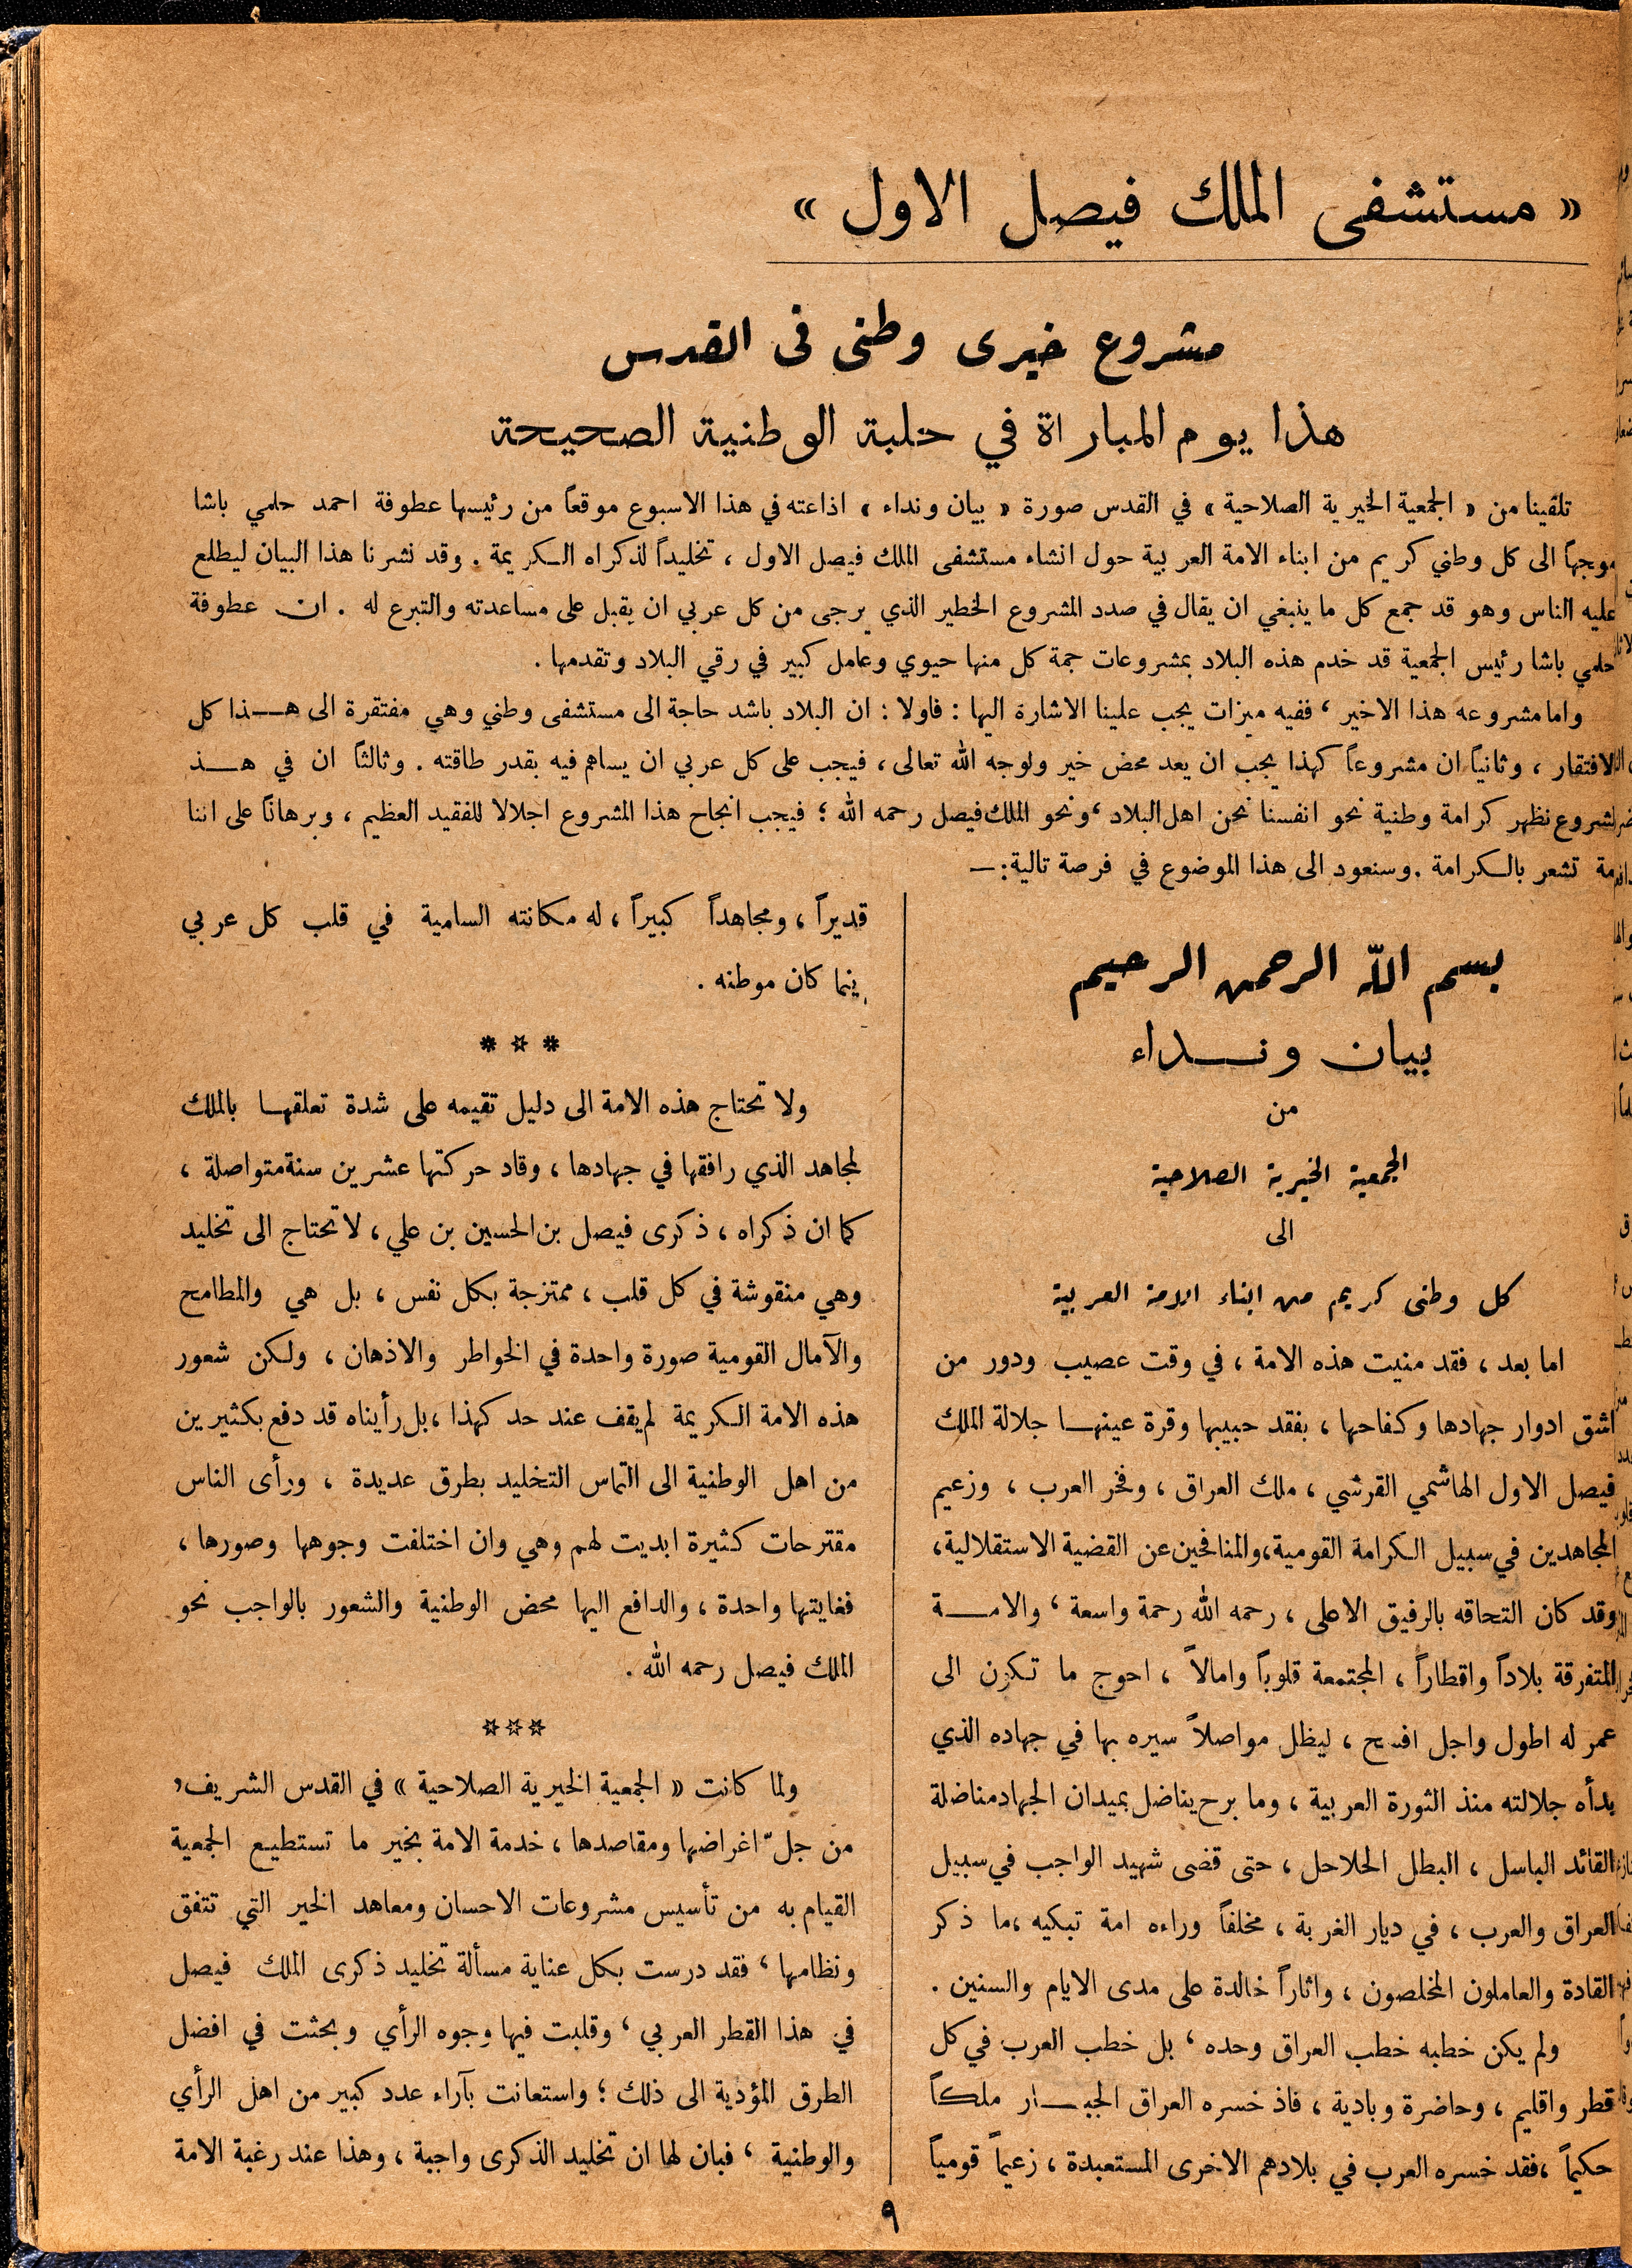 « مستشفى الملك فيصل الاول »
مشروع خيرى وطنى فى القدس
هذا يوم المباراة في حلبة الوطنية الصحيحة
تلقينا من « الجمعية الخيرية الصلاحية » في القدس صورة « بيان ونداء » اذاعته في هذا الاسبوع موقعاً من رئيسها عطوفة احمد حلمي باشا
موجهاً الى كل وطني كريم من ابناء الامة العربية حول انشاء مستشفى الملك فيصل الاول ، تخليداً لذكراه الكريمة . وقد نشرنا هذا البيان ليطلع
عليه الناس وهو قد جمع كل ما ينبغي ان يقال في صدد المشروع الخطير الذي يرجى من كل عربي ان يقبل على مساعدته والتبرع له . ان عطوفة
حلمي باشا رئيس الجمعية قد خدم هذه البلاد بمشروعات جمة كل منها حيوي وعامل كبير في رقي البلاد وتقدمها .
واما مشروعه هذا الاخير ، ففيه ميزات يجب علينا الاشارة اليها : فاولا : ان البلاد باشد حاجة الى مستشفى وطني وهي مفتقرة الى هـذا كل
الافتقار ، وثانياً ان مشروعاً كهذا يجب ان يعد محض خير ولوجه الله تعالى ، فيجب على كل عربي ان يساهم فيه بقدر طاقته . وثالثاً ان في هـذ
لشروع نظهر كرامة وطنية نحو انفسنا نحن اهل البلاد ، ونحو الملك فيصل رحمه الله ؛ فيجب انجاح هذا المشروع اجلالا للفقيد العظيم ، وبرهاناً على اننا
مة تشعر بالكرامة . وسنعود الى هذا الموضوع في فرصة تالية : —
بسم الله الرحمن الرحيم
بيان ونـداء
من
الجمعية الخيرية الصلاحية
الى
كل وطنى كريم من ابناء الامة العربية
اما بعد ، فقد منيت هذه الامة ، في وقت عصيب ودور من
اشق ادوار جهادها وكفاحها ، بفقد حبيبها وقرة عينهـا جلالة الملك
فيصل الاول الهاشمي القرشي ، ملك العراق ، وفخر العرب ، وزعيم
المجاهدين في سبيل الكرامة القومية، والمنافحين عن القضية الاستقلالية،
وقد كان التحاقه بالرفيق الاعلى ، رحمه الله رحمة واسعة ، والامـة
المتفرقة بلاداً واقطاراً ، المجتمعة قلوباً وامالاً ، احوج ما تكون الى
عمر له اطول واجل افسح ، ليظل مواصلاً سيره بها في جهاده الذي
بدأه جلالته منذ الثورة العربية ، وما برح يناضل بميدان الجهاد مناضلة
القائد الباسل ، البطل الحلاحل ، حتى قضى شهيد الواجب في سبيل
العراق والعرب ، في ديار الغربة ، مخلفاً وراءه امة تبكيه ، ما ذكر
القادة والعاملون المخلصون ، واثاراً خالدة على مدى الايام والسنين .
ولم يكن خطبه خطب العراق وحده ، بل خطب العرب في كل
قطر واقليم ، وحاضرة وبادية ، فاذ خسره العراق الجبـار ملكاً
حكيماً ، فقد خسره العرب في بلادهم الاخرى المستعبدة ، زعيماً قومياً
قديراً ، ومجاهداً كبيراً ، له مكانته السامية في قلب كل عربي
ينما كان موطنه .
* * *
ولا تحتاج هذه الامة الى دليل تقيمه على شدة تعلقهـا بالملك
لمجاهد الذي رافقها في جهادها ، وقاد حركتها عشرين سنة متواصلة ،
كما ان ذكراه ، ذكرى فيصل بن الحسين بن علي ، لا تحتاج الى تخليد
وهي منقوشة في كل قلب ، ممتزجة بكل نفس ، بل هي والمطامح
والآمال القومية صورة واحدة في الخواطر والاذهان ، ولكن شعور
هذه الامة الكريمة لم يقف عند حد كهذا ، بل رأيناه قد دفع بكثيرين
من اهل الوطنية الى التماس التخليد بطرق عديدة ، ورأى الناس
مقترحات كثيرة ابديت لهم وهي وان اختلفت وجوهها وصورها ،
فغايتها واحدة ، والدافع اليها محض الوطنية والشعور بالواجب نحو
الملك فيصل رحمه الله .
***
ولما كانت « الجمعية الخيرية الصلاحية » في القدس الشريف ،
من جلّ اغراضها ومقاصدها ، خدمة الامة بخير ما تستطيع الجمعية
القيام به من تأسيس مشروعات الاحسان ومعاهد الخير التي تتفق
ونظامها ، فقد درست بكل عناية مسألة تخليد ذكرى الملك فيصل
في هذا القطر العربي ، وقلبت فيها وجوه الرأي وبحثت في افضل
الطرق المؤدية الى ذلك ؛ واستعانت بآراء عدد كبير من اهل الرأي
والوطنية ، فبان لها ان تخليد الذكرى واجبة ، وهذا عند رغبة الامة
٩